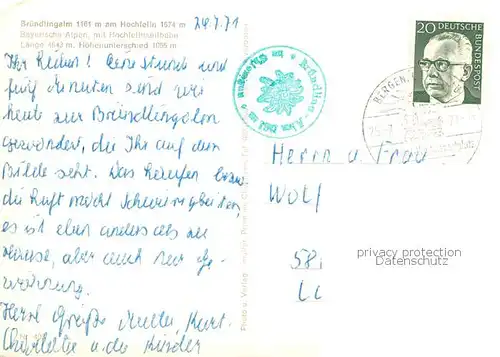 Bründlingalm 1161 m am Hochfelln 1674 m
Bayerische Alpen, mit Hochfellnseilbahn
Länge 4643 m. Höhenunterschied 1055 m
24.7.71
Ihr Lieben! Eine Stunde und
fünf Minuten sind wir
heute zur Bründlingalm
gewandert, die Ihr auf dem
Bilde seht. Das Laufen bzw.
die Luft macht Schwierigkeiten,
es ist eben anders als zu
Hause, aber auch nur Ge-
wöhnung.
Herzl. Grüße Mutti, Kurt,
u. die Kinder
Bründling-Alm
20
DEUTSCHE
BUNDESPOST
BERGEN
Herrn u. Frau
Wolf
58
privacy protection
Datenschutz